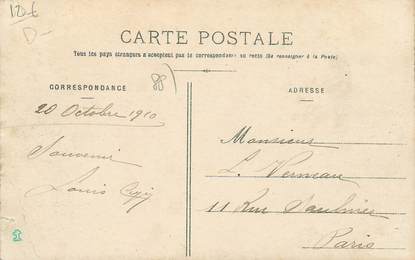 120€
D-
CARTE POSTALE
Tous les pays étrangers n'acceptent pas la correspondance au recto (Se renseigner à la Poste)
88
CORRESPONDANCE
20 Octobre 1910
Souvenir
Louis
ADRESSE
Monsieur
L. Verneau
11 Rue Saulnier
Paris